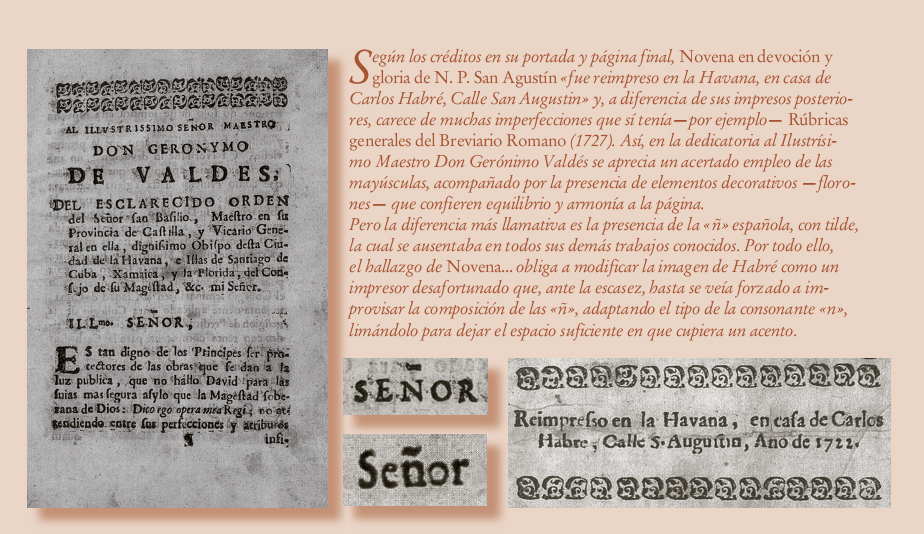 AL ILLVSTRISSIMO SEÑOR MAESTRO
DON GERONYMO
DE VALDES;
DEL ESCLARECIDO ORDEN
del Señor san Basilio, Maestro en su
Provincia de Castilla, y Vicario Gene-
ral en ella, dignissimo Obispo desta Ciu-
dad de la Havana, e Islas de Santiago de
Cuba, Xamaica, y la Florida, del Con-
sejo de su Magestad, &c. mi Señor.
ILLmo. SEÑOR;
ES tan digno de los Principes ser pro-
tectores de las obras que se dan a la
luz publica, que no hallo David para las
suias mas segura asylo que la Magestad sobe-
rana de Dios: Dico ego opera mea Regi; no at-
tendiendo entre sus perfecciones y atributos
infi-
Según los créditos en su portada y página final, Novena en devoción y
gloria de N. P. San Agustín «fue reimpreso en la Havana, en casa de
Carlos Habré, Calle San Augustin» y, a diferencia de sus impresos posterio-
res, carece de muchas imperfecciones que sí tenía—por ejemplo— Rúbricas
generales del Breviario Romano (1727). Así, en la dedicatoria al Ilustrísi-
mo Maestro Don Gerónimo Valdés se aprecia un acertado empleo de las
mayúsculas, acompañado por la presencia de elementos decorativos —floro-
nes— que confieren equilibrio y armonía a la página.
Pero la diferencia más llamativa es la presencia de la «ñ» española, con tilde,
la cual se ausentaba en todos sus demás trabajos conocidos. Por todo ello,
el hallazgo de Novena... obliga a modificar la imagen de Habré como un
impresor desafortunado que, ante la escasez, hasta se veía forzado a im-
provisar la composición de las «ñ», adaptando el tipo de la consonante «n»,
limándolo para dejar el espacio suficiente en que cupiera un acento.
SEÑOR
Señor
Reimpresso en la Havana, en casa de Carlos
Habre, Calle S. Augustin, Año de 1722.